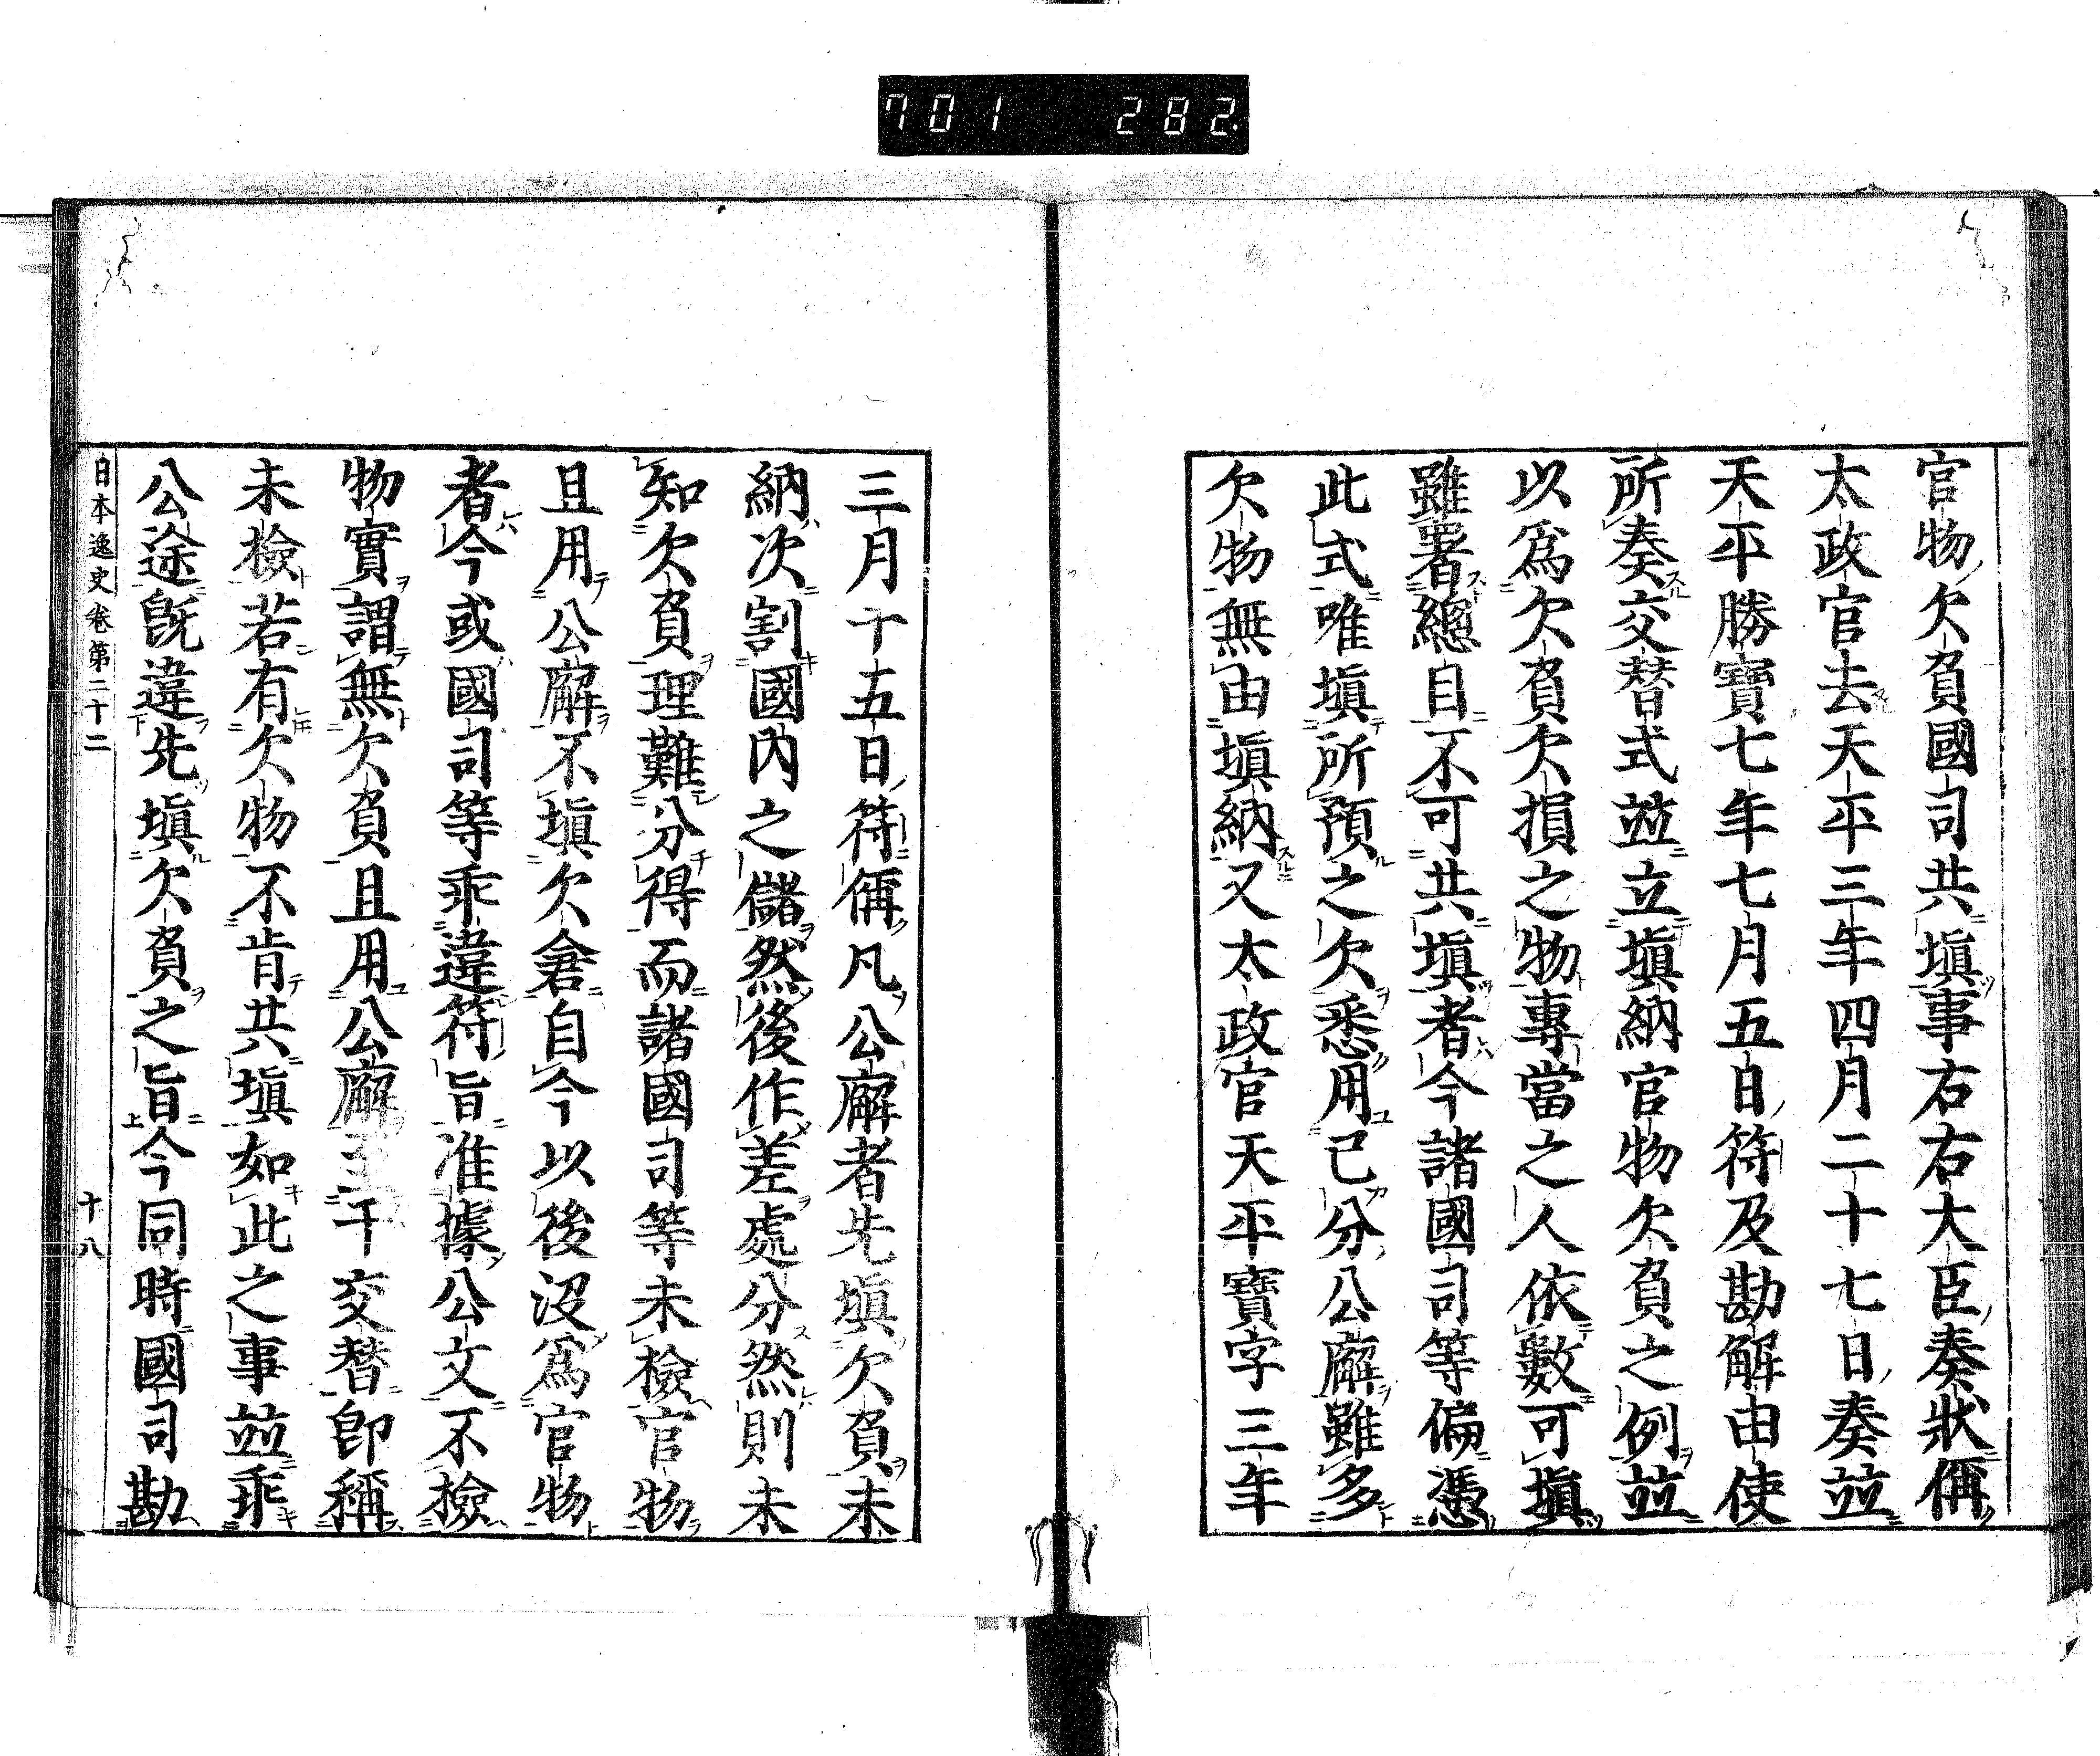 701 282
官物欠負國司共塡事右右大臣奏狀偁
太政官去天平三年四月二十七日奏並
天平勝寶七年七月五日符及勘解由使
所奏交替式並立塡納官物欠負之例並
以爲欠負欠損之物專當之人依數可塡
雖署總目不可共塡者今諸國司等偏憑
此式唯塡所預之欠悉用己分公廨雖多
欠物無由塡納又太政官天平寶字三年
三月十五日符偁凡公廨者先塡欠負未
納次割國内之儲然後作差處分然則未
知欠負理難分得而諸國司等未檢官物
且用公廨不塡欠倉自今以後沒爲官物
者今或國司等乖違符旨准據公文不檢
物實謂無欠負且用公廨至于交替卽稱
未檢若有欠物不肯共塡如此之事並乖
公途旣違先塡欠負之旨今同時國司勘
日本逸史卷第二十二
十八